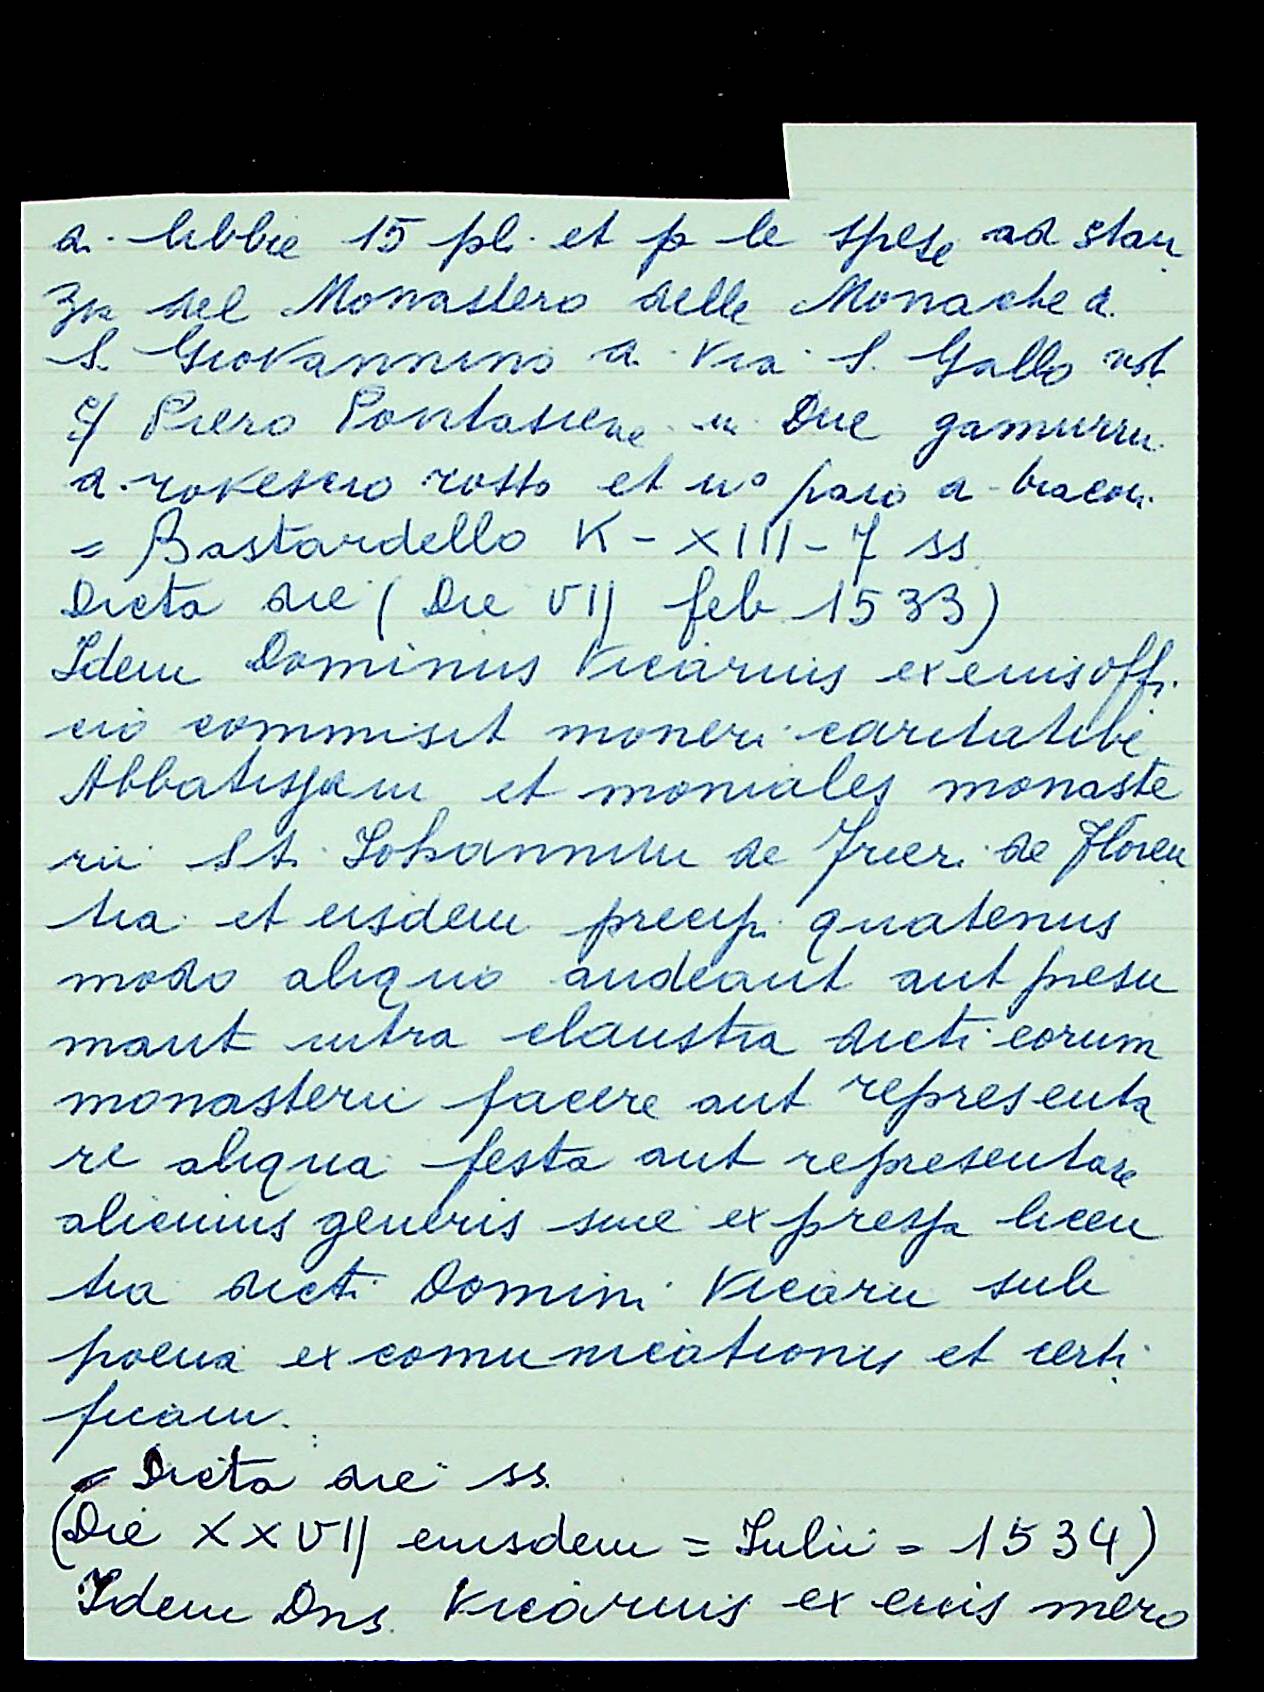 a. libbre 15 pl. et p le spese ad stan
za del Monastero delle Monache d.
S. Giovannino a Via S. Gallo not.
Piero Pontassieve in Due gamurrin.
a. rovescio rosso et uº paro a bracci
= Bastardello K - XIII - 7 ss.
Dicta die (Die VII feb 1533)
Idem Dominus Vicarius ex eius offi.
cio commisit moneri caritative
Abbatissam et moniales monaste
rii St. Iohannini de Frieri de Floren
tia et eisdem precipi quatenus
modo aliquo audeant aut presu
mant intra claustra dicti eorum
monasterii facere aut representa
re aliqua festa aut representare
alicuius generis sine expressa licen
tia dicti Domini Vicarii sub
poena excomunicationis et certi
ficam.
= Dicta die ss.
(Die XXVII eiusdem = Iulii = 1534)
Idem Dns. Vicarius ex eius mero